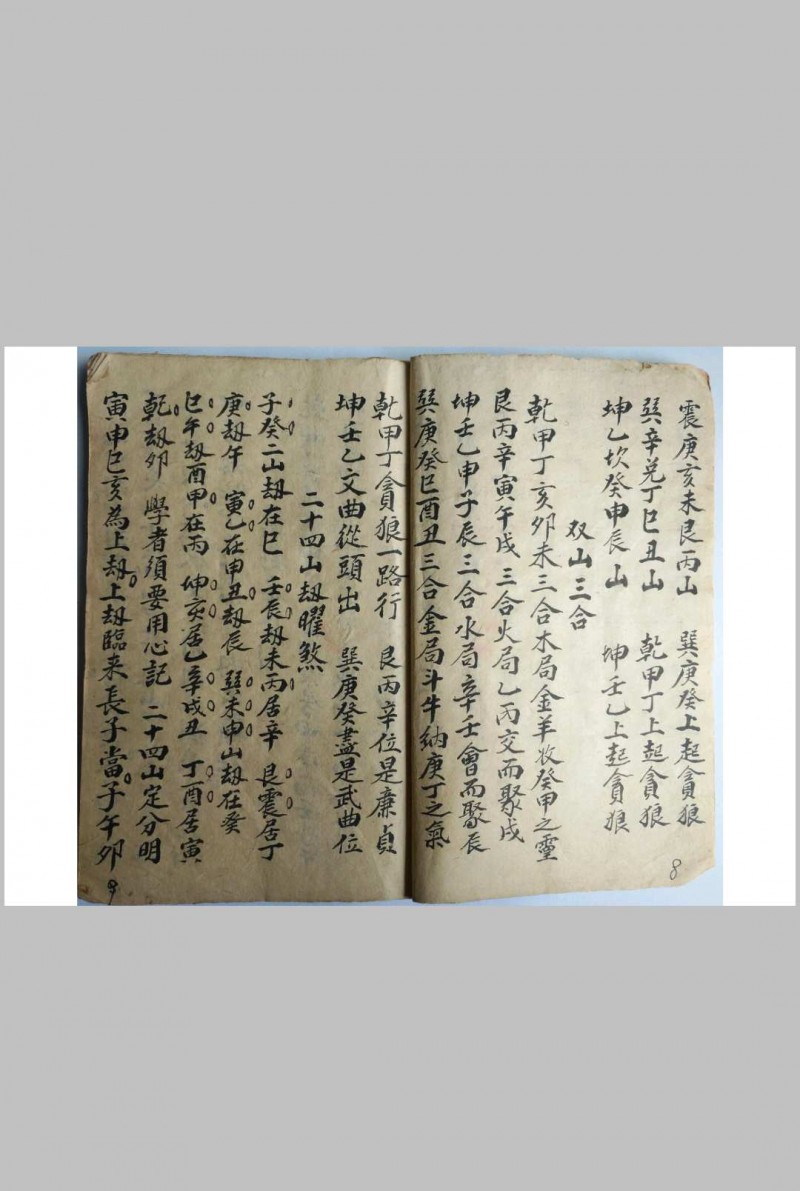 震庚亥未艮丙山 巽庚癸上起貪狼
巽辛兑丁巳丑山 乾甲丁上起貪狼
坤乙坎癸申辰山 坤壬乙上起貪狼
双山三合
乾甲丁亥卯未三合木局金羊收癸甲之靈
艮丙辛寅午戌三合火局乙丙交而聚戌
坤壬乙申子辰三合水局辛壬會而聚辰
巽庚癸巳酉丑三合金局斗牛納庚丁之氣
8
乾甲丁貪狼一路行 艮丙辛位是廉貞
坤壬乙文曲從頭出 巽庚癸盡是武曲位
二十四山刼曜煞
子癸二山刼在巳 壬辰刼未丙居辛 艮震居丁
庚刼午 寅乙在申丑刼辰 巽未申山刼在癸
巳午刼酉甲在丙 坤亥居乙辛戌丑 丁酉居寅
乾刼卯 學者須要用心記 二十四山定分明
寅申巳亥為上刼上刼臨来長子當子午卯
9